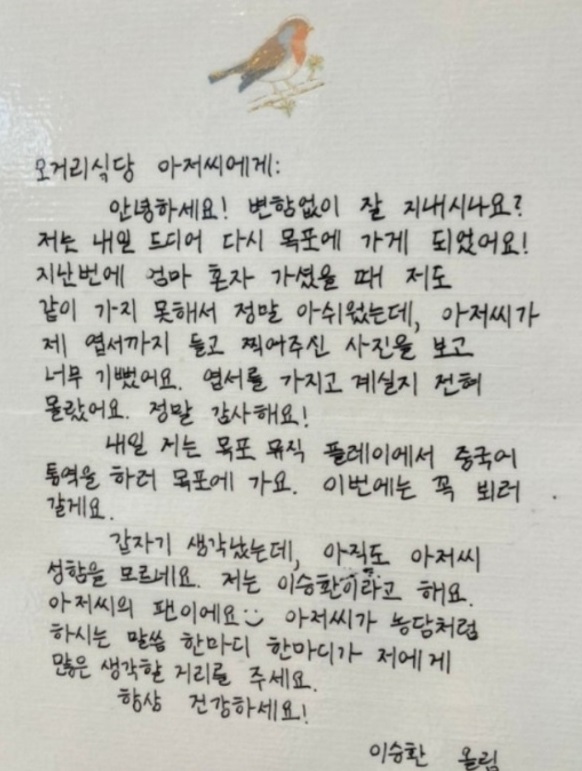 오거리식당 아저씨에게:
안녕하세요! 변함없이 잘 지내시나요?
저는 내일 드디어 다시 목포에 가게 되었어요!
지난번에 엄마 혼자 가셨을 때 저도
같이 가지 못해서 정말 아쉬웠는데, 아저씨가
제 엽서까지 들고 찍어주신 사진을 보고
너무 기뻤어요. 엽서를 가지고 계실지 전혀
몰랐어요. 정말 감사해요!
내일 저는 목포 뮤직 플레이에서 중국어
통역을 하러 목포에 가요. 이번에는 꼭 뵈러
갈게요.
갑자기 생각났는데, 아직도 아저씨
성함을 모르네요. 저는 이승환이라고 해요.
아저씨의 팬이에요 아저씨가 농담처럼
하시는 말씀 한마디 한마디가 저에게
많은 생각할 거리를 주세요.
항상 건강하세요!
이승환 올림